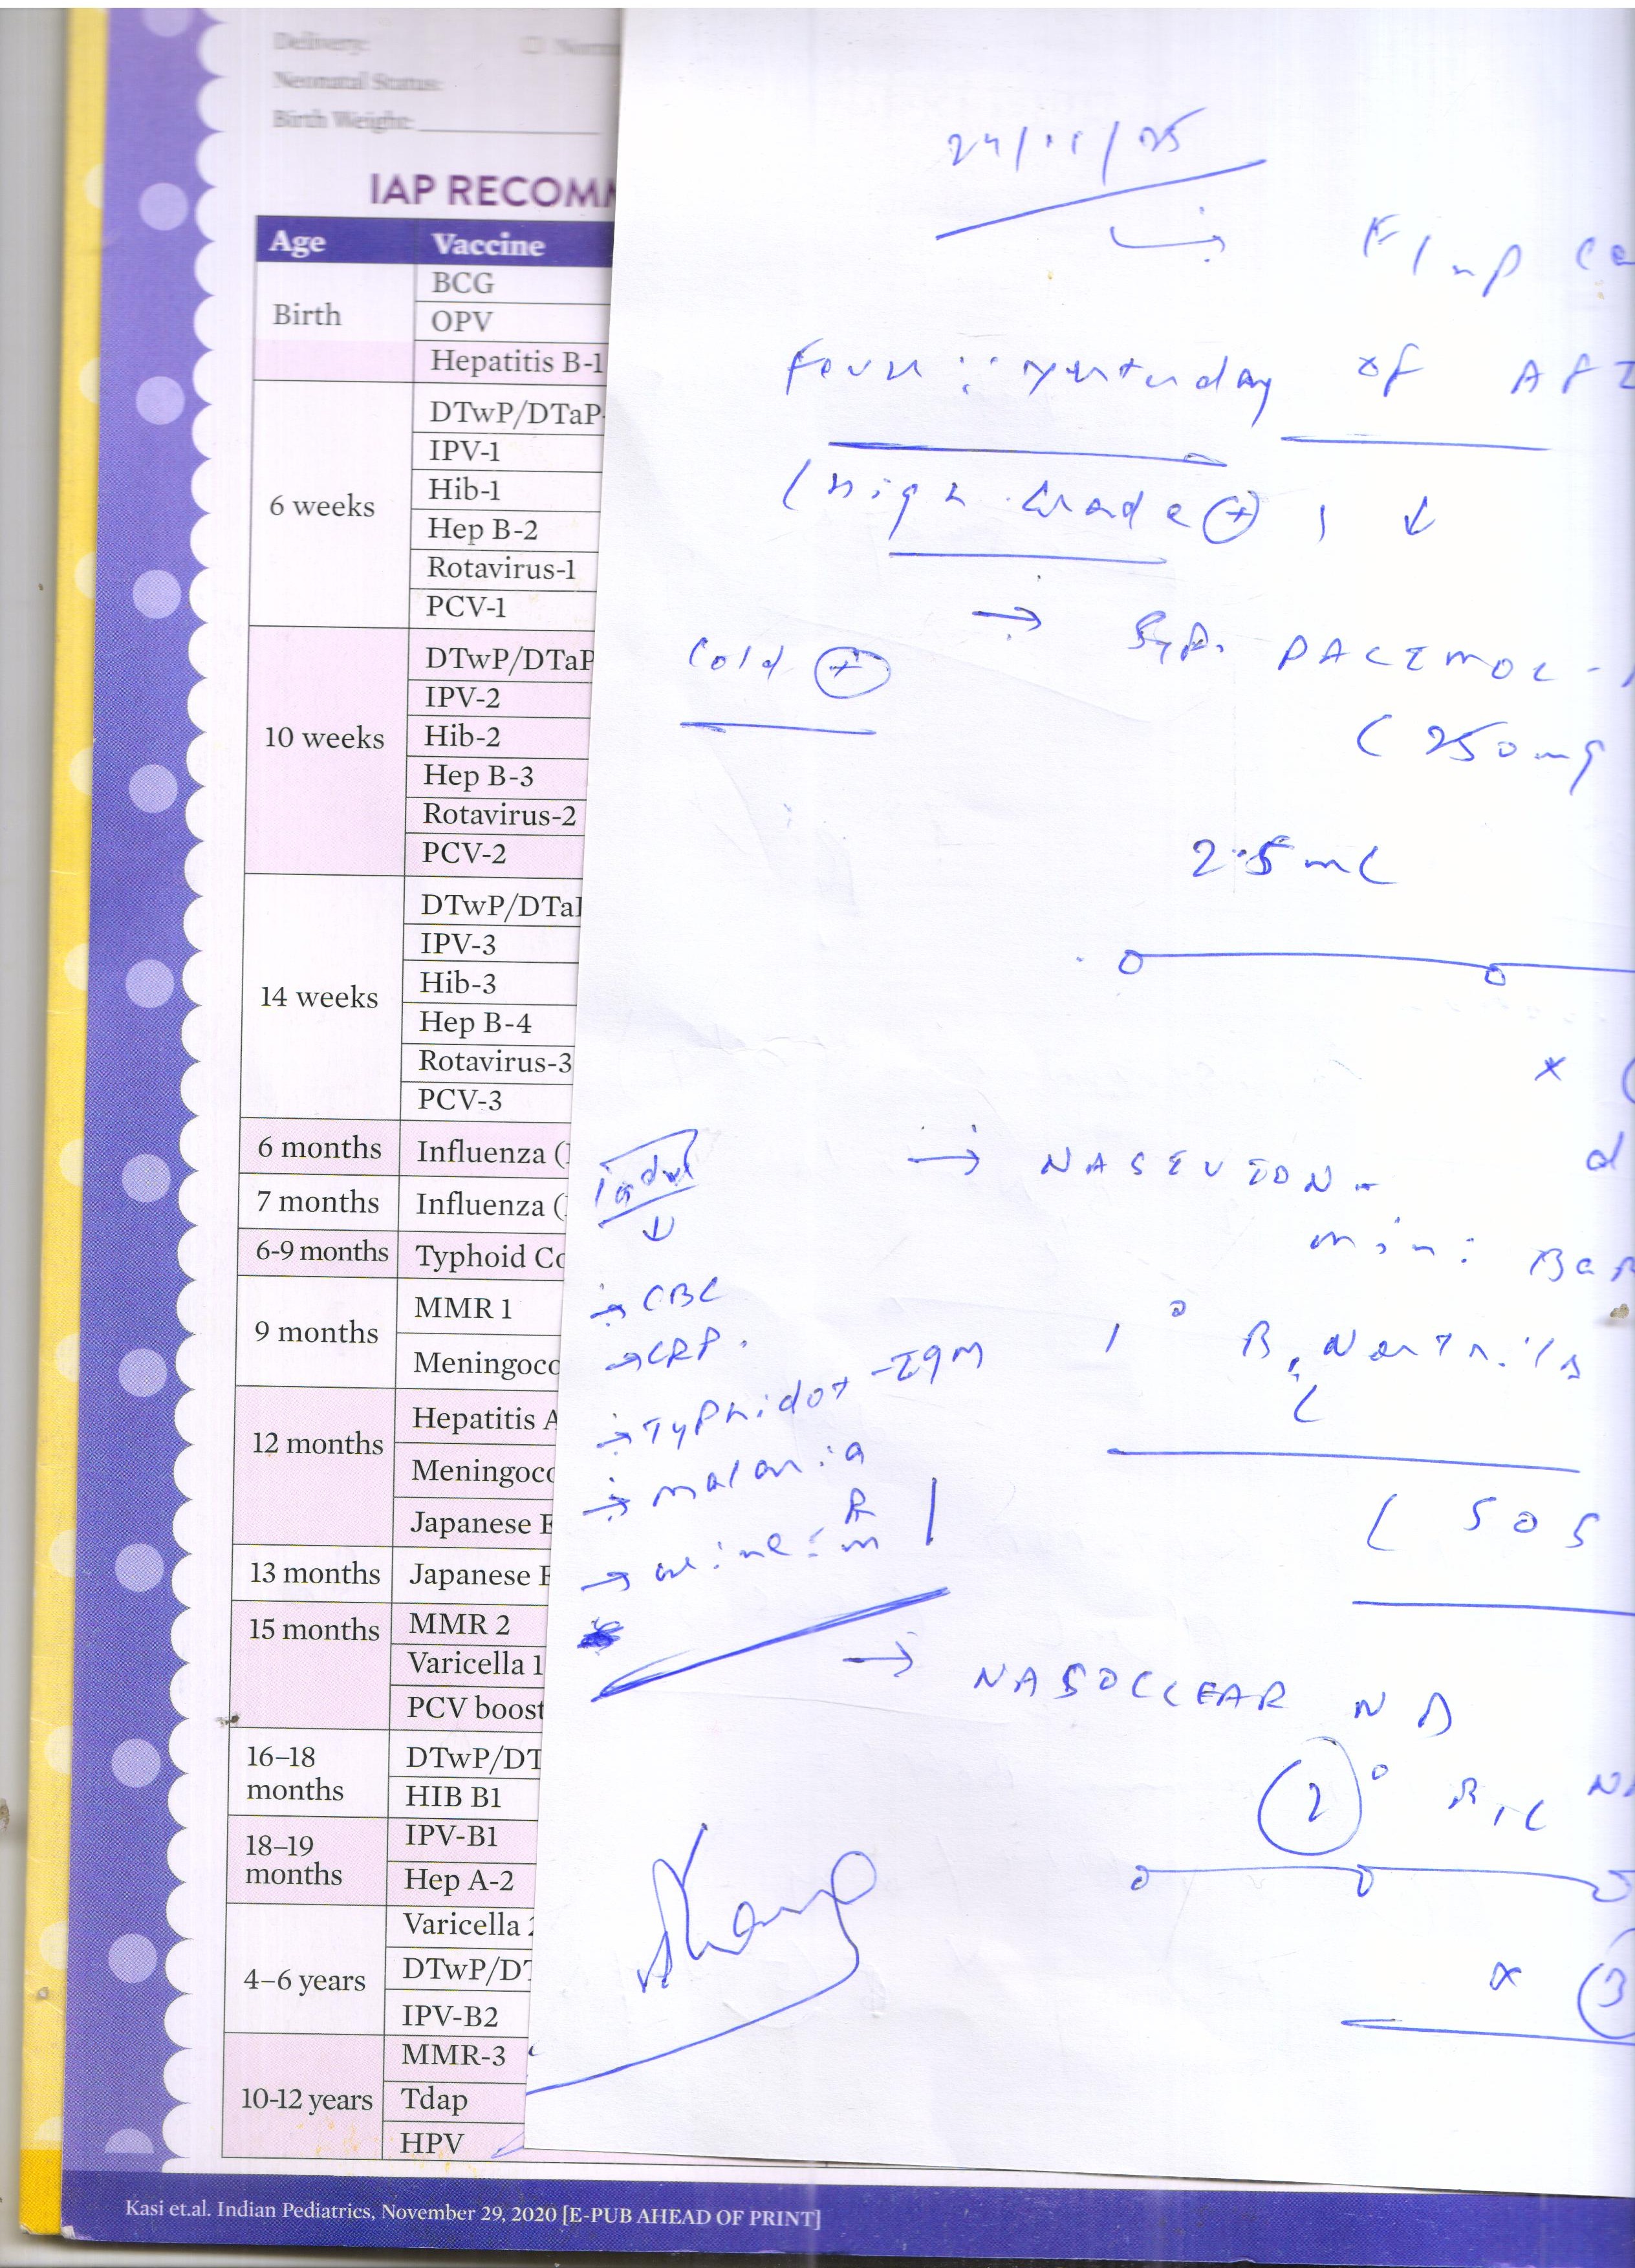 Delivery:
Neonatal Status:
Birth Weight:
IAP RECOMM
Age Vaccine
Birth
BCG
OPV
Hepatitis B-1
6 weeks
DTwP/DTaP-
IPV-1
Hib-1
Hep B-2
Rotavirus-1
PCV-1
10 weeks
DTwP/DTaP
IPV-2
Hib-2
Hep B-3
Rotavirus-2
PCV-2
14 weeks
DTwP/DTaP
IPV-3
Hib-3
Hep B-4
Rotavirus-3
PCV-3
6 months Influenza (
7 months Influenza (
6-9 months Typhoid Co
9 months
MMR 1
Meningoco
12 months
Hepatitis A
Meningoco
Japanese E
13 months Japanese E
15 months
MMR 2
Varicella 1
PCV boost
16–18 months
DTwP/DT
HIB B1
18–19 months
IPV-B1
Hep A-2
4–6 years
Varicella 2
DTwP/DT
IPV-B2
10-12 years
MMR-3
Tdap
HPV
Kasi et.al. Indian Pediatrics, November 29, 2020 [E-PUB AHEAD OF PRINT]
yesterday of
(High Grade (+)
Cold (+)
→ Syp. PACIMOL -
(250mg
2.5 ml
x
→ NASIVION -
→ CBC
→ CRP.
→ Typhidot - IgM
→ malaria
→ urine:
(SOS
→ NASOCLEAR ND
(2)
x (3